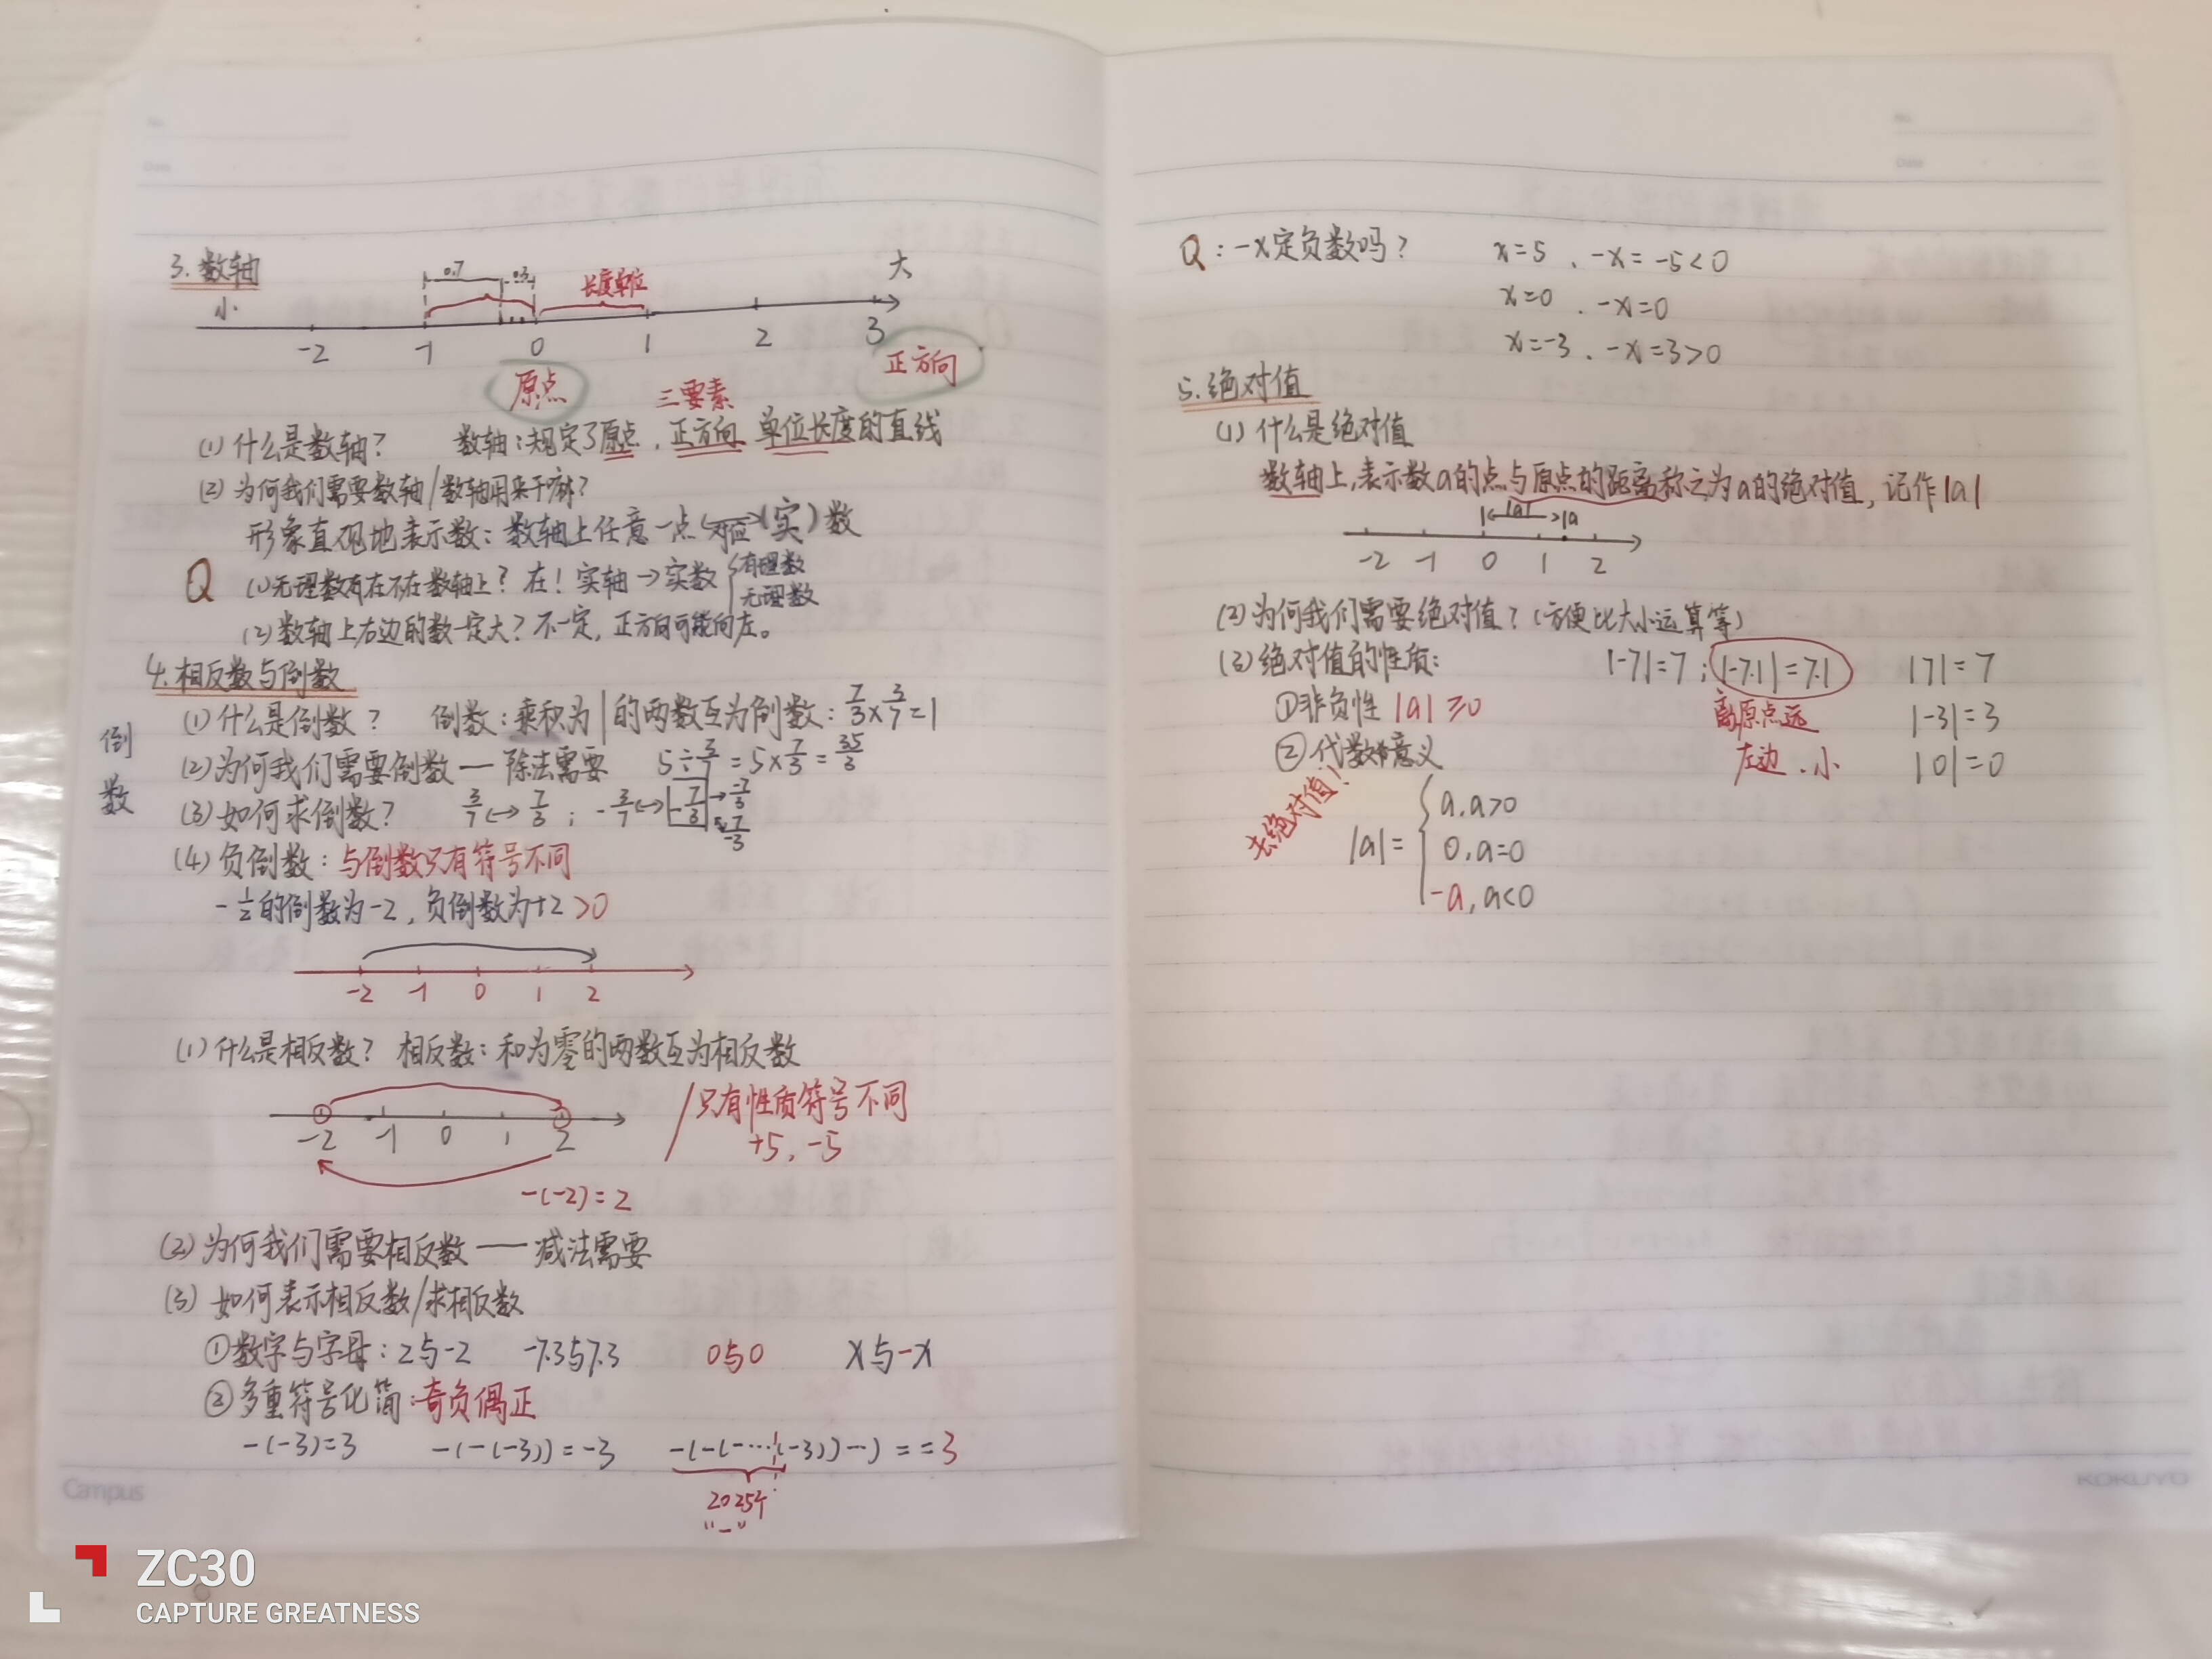 3.数轴
小
大
0.7
0.3
长度单位
-2 -1 0 1 2 3
原点
三要素
正方向
(1) 什么是数轴? 数轴:规定了原点,正方向 单位长度的直线
(2) 为何我们需要数轴/数轴用来干嘛?
形象直观地表示数:数轴上任意一点 ⟷ (实)数
对应
Q (1)无理数在不在数轴上?在!实轴→实数{有理数
无理数
(2)数轴上右边的数一定大?不一定,正方向可能向左。
4.相反数与倒数
倒数
(1)什么是倒数? 倒数:乘积为1的两数互为倒数:7/3×3/7=1
(2)为何我们需要倒数 — 除法需要 5÷3/7=5×7/3=35/3
(3)如何求倒数? 3/7↔7/3 ; -3/7↔-7/3 →-7/3
7/-3
(4)负倒数:与倒数只有符号不同
-1/2的倒数为-2,负倒数为+2>0
-2 -1 0 1 2
(1)什么是相反数? 相反数:和为零的两数互为相反数
-2 -1 0 1 2
/只有性质符号不同
+5,-5
-(-2)=2
(2)为何我们需要相反数 — 减法需要
(3) 如何表示相反数/求相反数
①数字与字母:2与-2 -7.3与7.3 0与0 x与-x
②多重符号化简:奇负偶正
-(-3)=3 -(-(-3))=-3 -(-(-…(-3))…)==3
2025个
"-"
Campus
Q:-x定负数吗? x=5、-x=-5<0
x=0、-x=0
x=-3、-x=3>0
5.绝对值
(1) 什么是绝对值
数轴上,表示数a的点与原点的距离称之为a的绝对值,记作|a|
|a| a
-2 -1 0 1 2
(2)为何我们需要绝对值?(方便比大小运算等)
(3)绝对值的性质: |-7|=7;|-7.1|=7.1 |7|=7
①非负性 |a|≥0 离原点远 |-3|=3
②代数意义 左边、小 |0|=0
去绝对值!
|a|={a,a>0
0,a=0
-a,a<0
KOKUYO
ZC30
CAPTURE GREATNESS